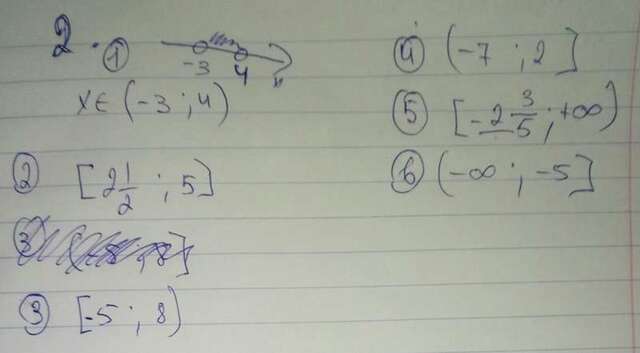 2. ①
-3 4 x
x∈(-3 ; 4)
② [2 1/2 ; 5]
③ [-5 ; 8)
④ (-7 ; 2]
⑤ [-2 3/5 ; +∞)
⑥ (-∞ ; -5]